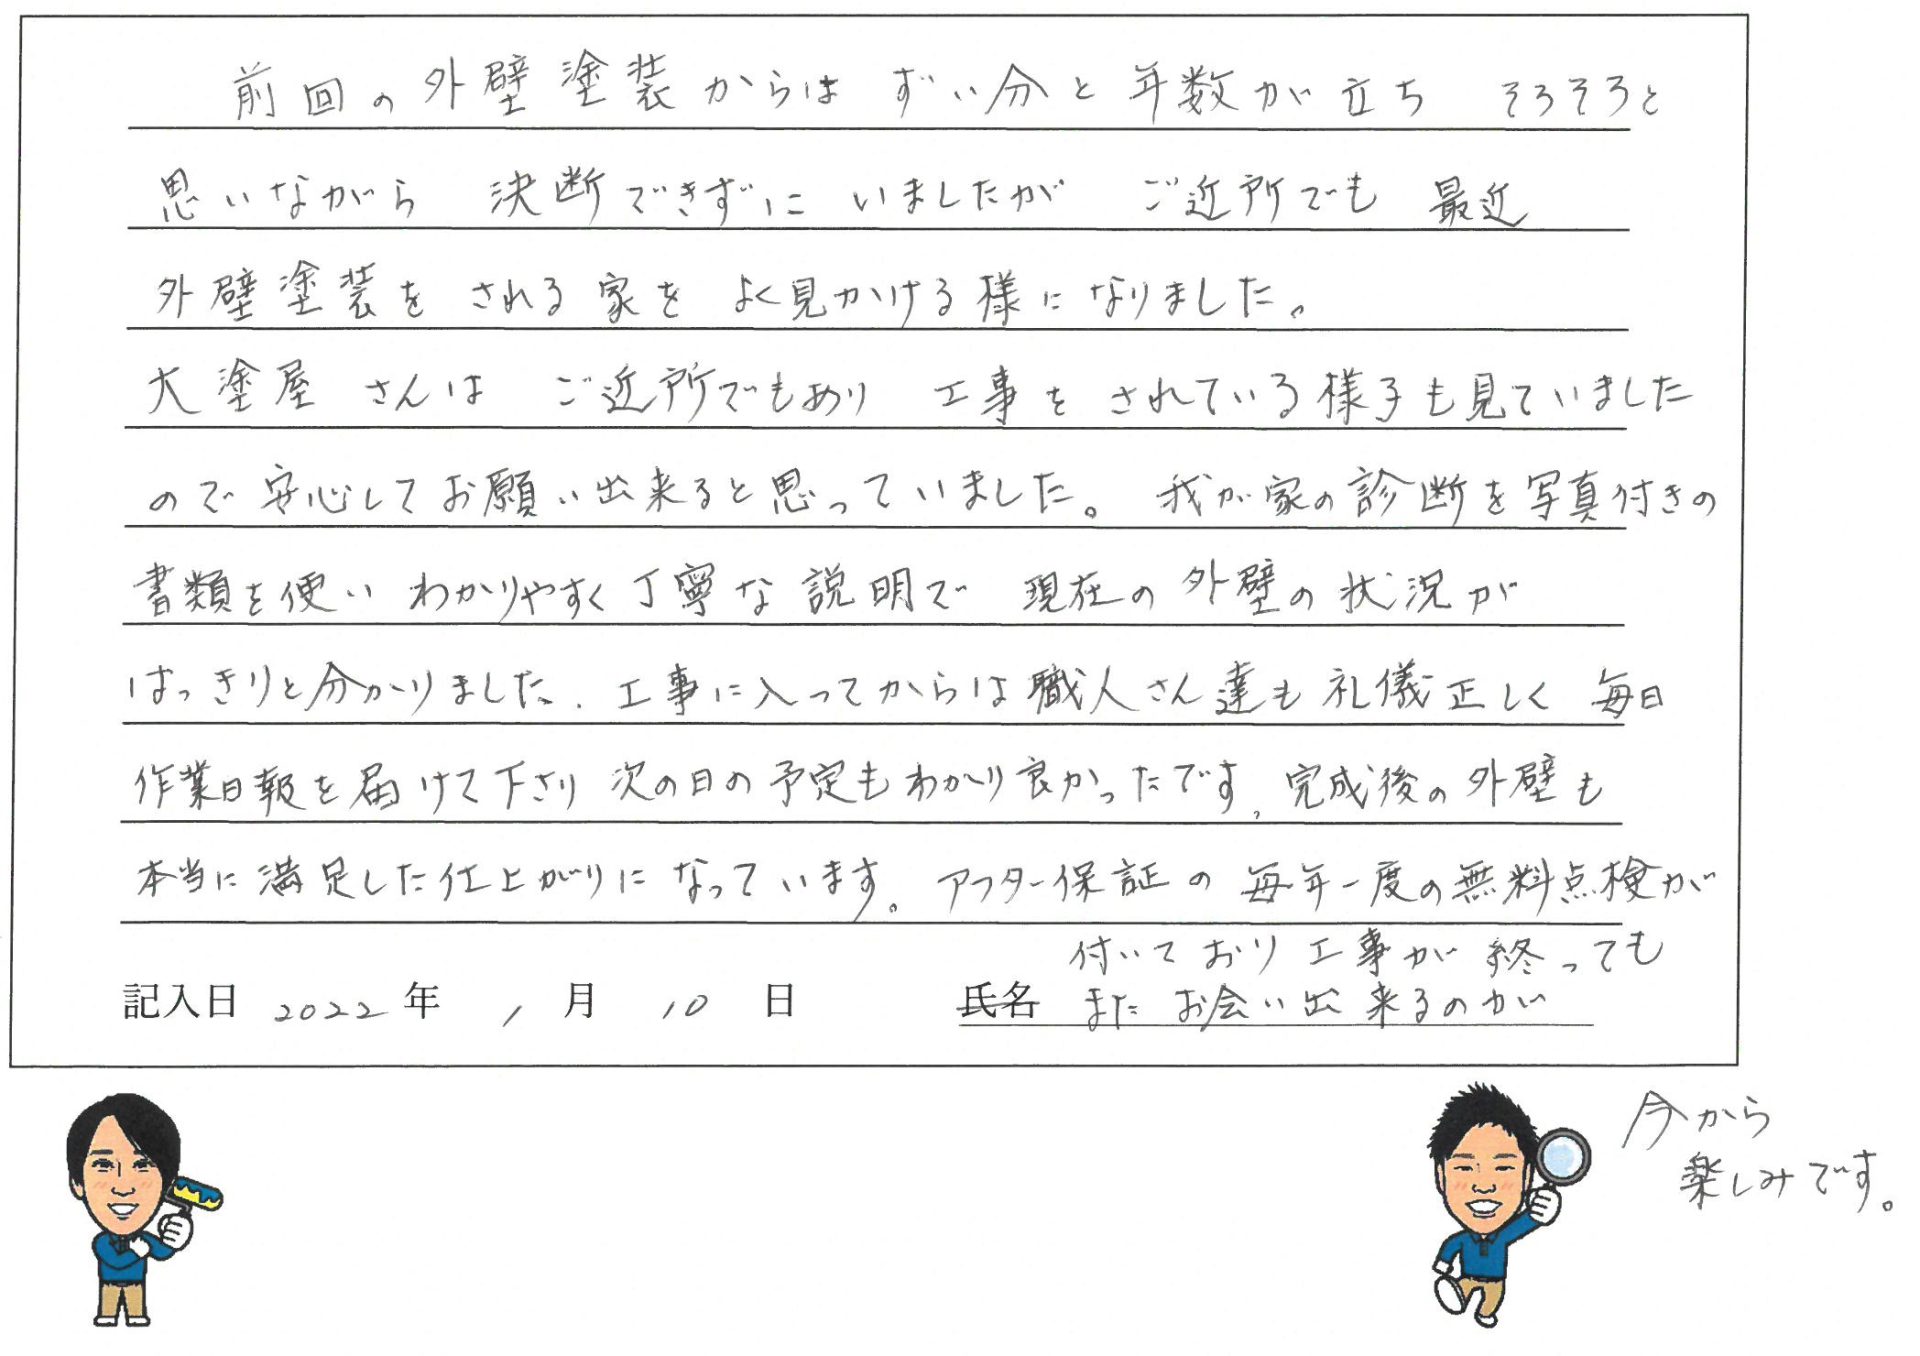 前回の外壁塗装からは ずい分と年数が立ち そろそろと
思いながら 決断できずに いましたが ご近所でも 最近
外壁塗装を される 家を よく見かける様になりました。
大塗屋 さんは ご近所でもあり 工事を されている様子も見ていました
ので 安心してお願い出来ると思っていました。 我が家の診断を写真付きの
書類を使い わかりやすく丁寧な説明で 現在の外壁の状況が
はっきりと分かりました. 工事に入ってからは職人さん達も礼儀正しく 毎日
作業日報を届けて下さり 次の日の予定もわかり良かったです, 完成後の外壁も
本当に満足した仕上がりになっています。アフター保証の毎年一度の無料点検が
付いており工事が終っても
記入日 2022 年 1 月 10 日 氏名 またお会い出来るのが
今から
楽しみです。